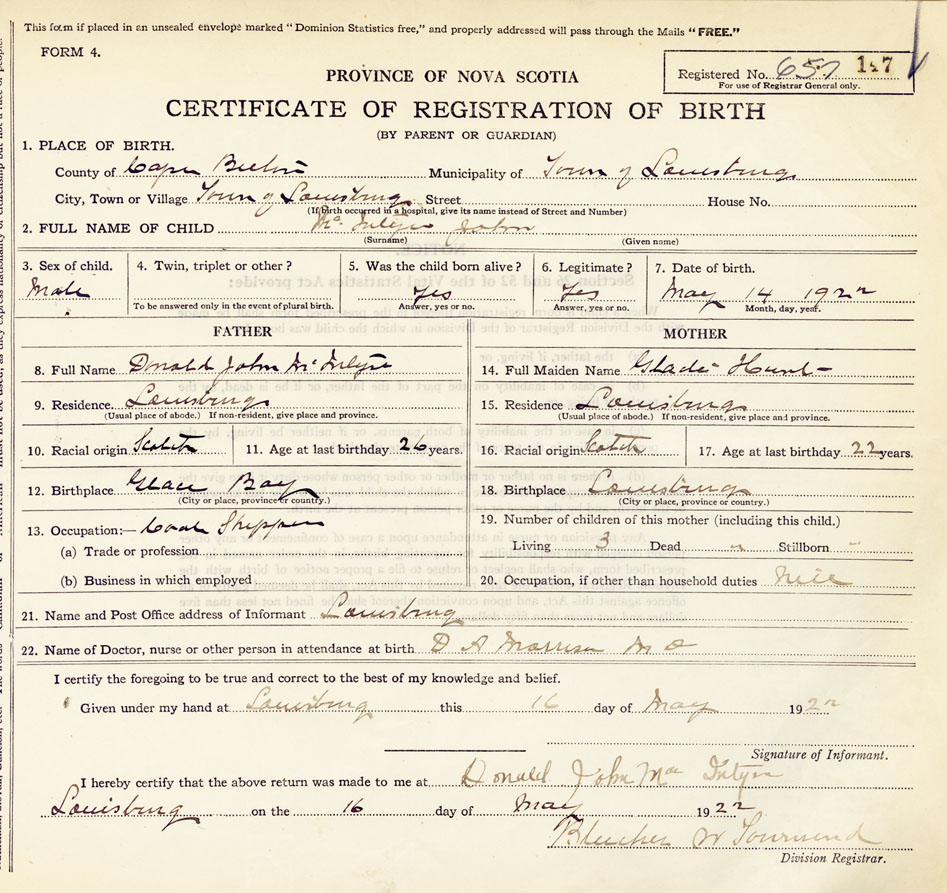 This form if placed in an unsealed envelope marked "Dominion Statistics free," and properly addressed will pass through the Mails "FREE."
FORM 4.
Registered No. 657 147
For use of Registrar General only.
PROVINCE OF NOVA SCOTIA
CERTIFICATE OF REGISTRATION OF BIRTH
(BY PARENT OR GUARDIAN)
1. PLACE OF BIRTH.
County of Cape Breton Municipality of Town of Louisburg
City, Town or Village Town of Louisburg Street House No.
(If birth occurred in a hospital, give its name instead of Street and Number)
2. FULL NAME OF CHILD McIntyre John
(Surname) (Given name)
3. Sex of child. 4. Twin, triplet or other? 5. Was the child born alive? 6. Legitimate? 7. Date of birth.
Male Yes Yes May 14 1922
To be answered only in the event of plural birth. Answer, yes or no. Answer, yes or no. Month, day, year.
FATHER MOTHER
8. Full Name Donald John McIntyre 14. Full Maiden Name Hunt
9. Residence. Louisburg 15. Residence Louisburg
(Usual place of abode.) If non-resident, give place and province. (Usual place of abode.) If non-resident, give place and province.
10. Racial origin Scotch 11. Age at last birthday 26 years. 16. Racial origin Scotch 17. Age at last birthday 22 years.
12. Birthplace Glace Bay 18. Birthplace Louisburg
(City or place, province or country.) (City or place, province or country.)
13. Occupation:— Coal Shipper 19. Number of children of this mother (including this child.)
(a) Trade or profession Living 3 Dead " Stillborn "
(b) Business in which employed 20. Occupation, if other than household duties Nill
21. Name and Post Office address of Informant Louisburg
22. Name of Doctor, nurse or other person in attendance at birth D A Morrison M D
I certify the foregoing to be true and correct to the best of my knowledge and belief.
Given under my hand at Louisburg this 16 day of May 1922
Signature of Informant.
I hereby certify that the above return was made to me at Donald John MacIntyre
Louisburg on the 16 day of May 1922
W Townsend
Division Registrar.